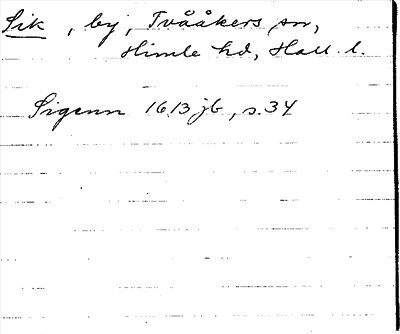 Sik, by, Tvååkers sn,
Himle hd, Hall. l.
Sigenn 1613 jb, s. 34